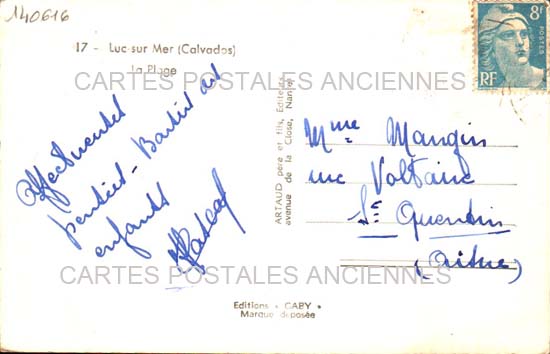 140616
17 - Luc-sur Mer (Calvados)
La Plage
8F
POSTES
RF
CARTES POSTALES ANCIENNES
Affectueuses
pensées - Baisers aux
enfants
ARTAUD père et fils, Editeurs
avenue de la Close, Nantes
Mme Mangin
rue Voltaire
St Quentin
(Aisne)
CARTES POSTALES ANCIENNES
Editions "GABY"
Marque déposée